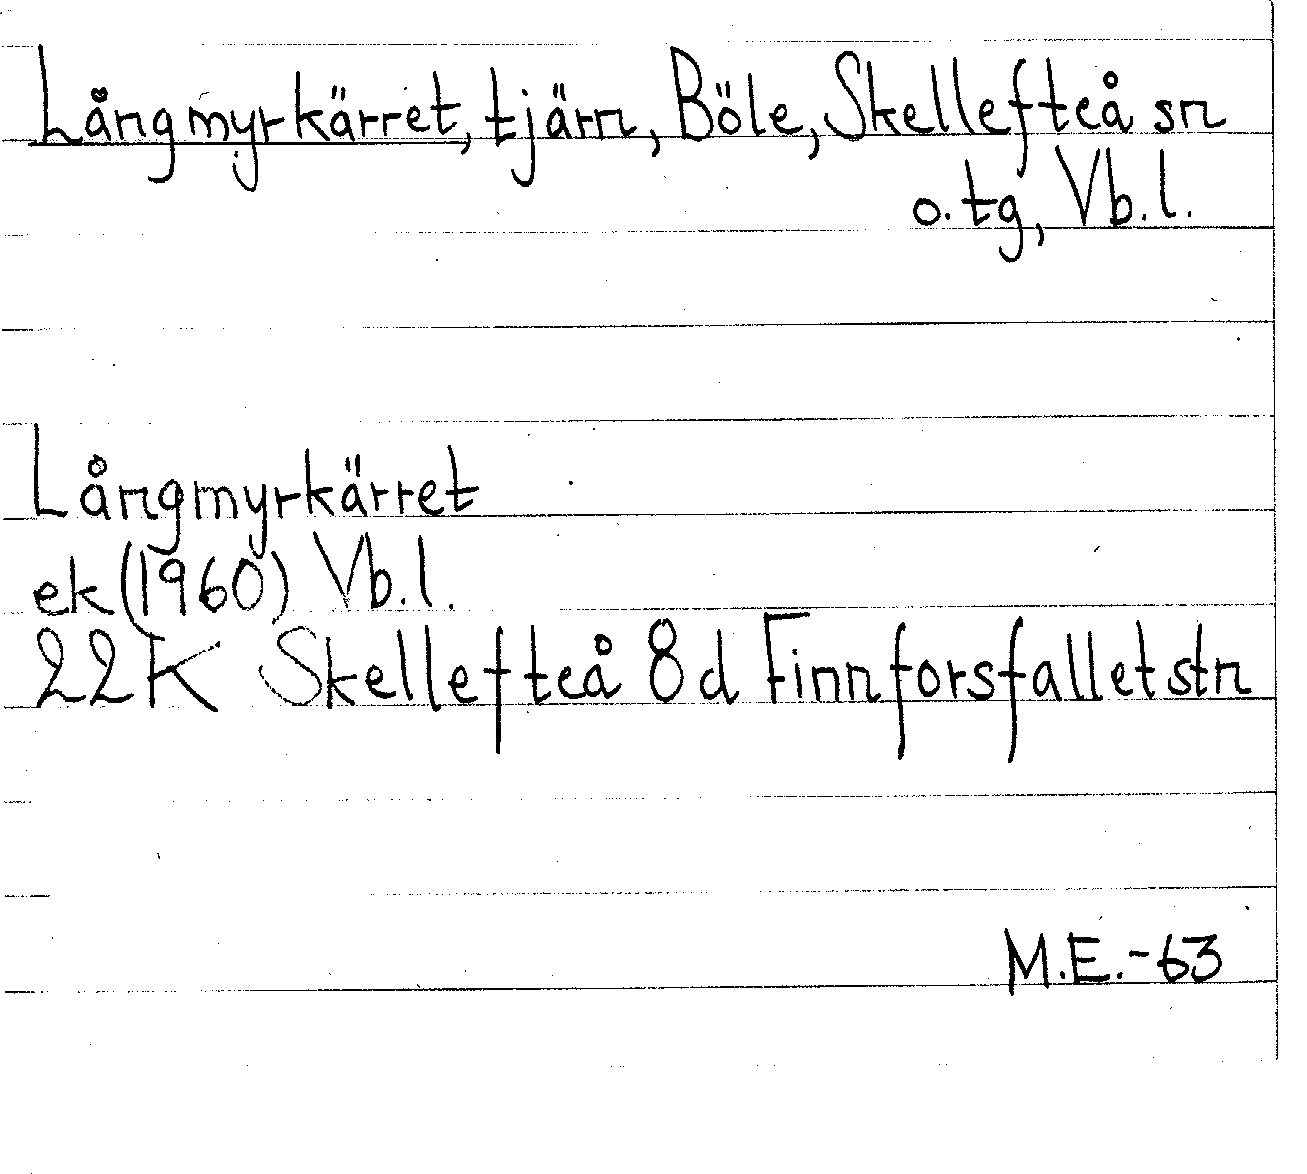 Långmyrkärret, tjärn, Böle, Skellefteå sn
o. tg, Vb. l.
Långmyrkärret
ek (1960) Vb. l.
22K Skellefteå 8d Finnforsfallet stn
M.E.-63